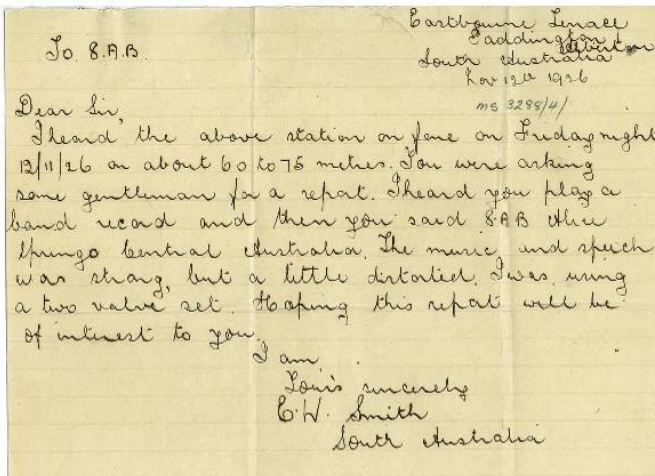 Eastbourne Terrace
Paddington
Alberton
South Australia
Nov 12th 1926
To 8.A.B.
MS 3288/4/
Dear Sir,
I heard the above station on fone on Friday night
12/11/26 on about 60 to 75 metres. You were asking
some gentleman for a report. I heard you play a
band record and then you said 8.A.B Alice
Springs Central Australia. The music and speech
was strong, but a little distorted. I was using
a two valve set. Hoping this report will be
of interest to you.
I am
Yours sincerely
E.W. Smith
South Australia